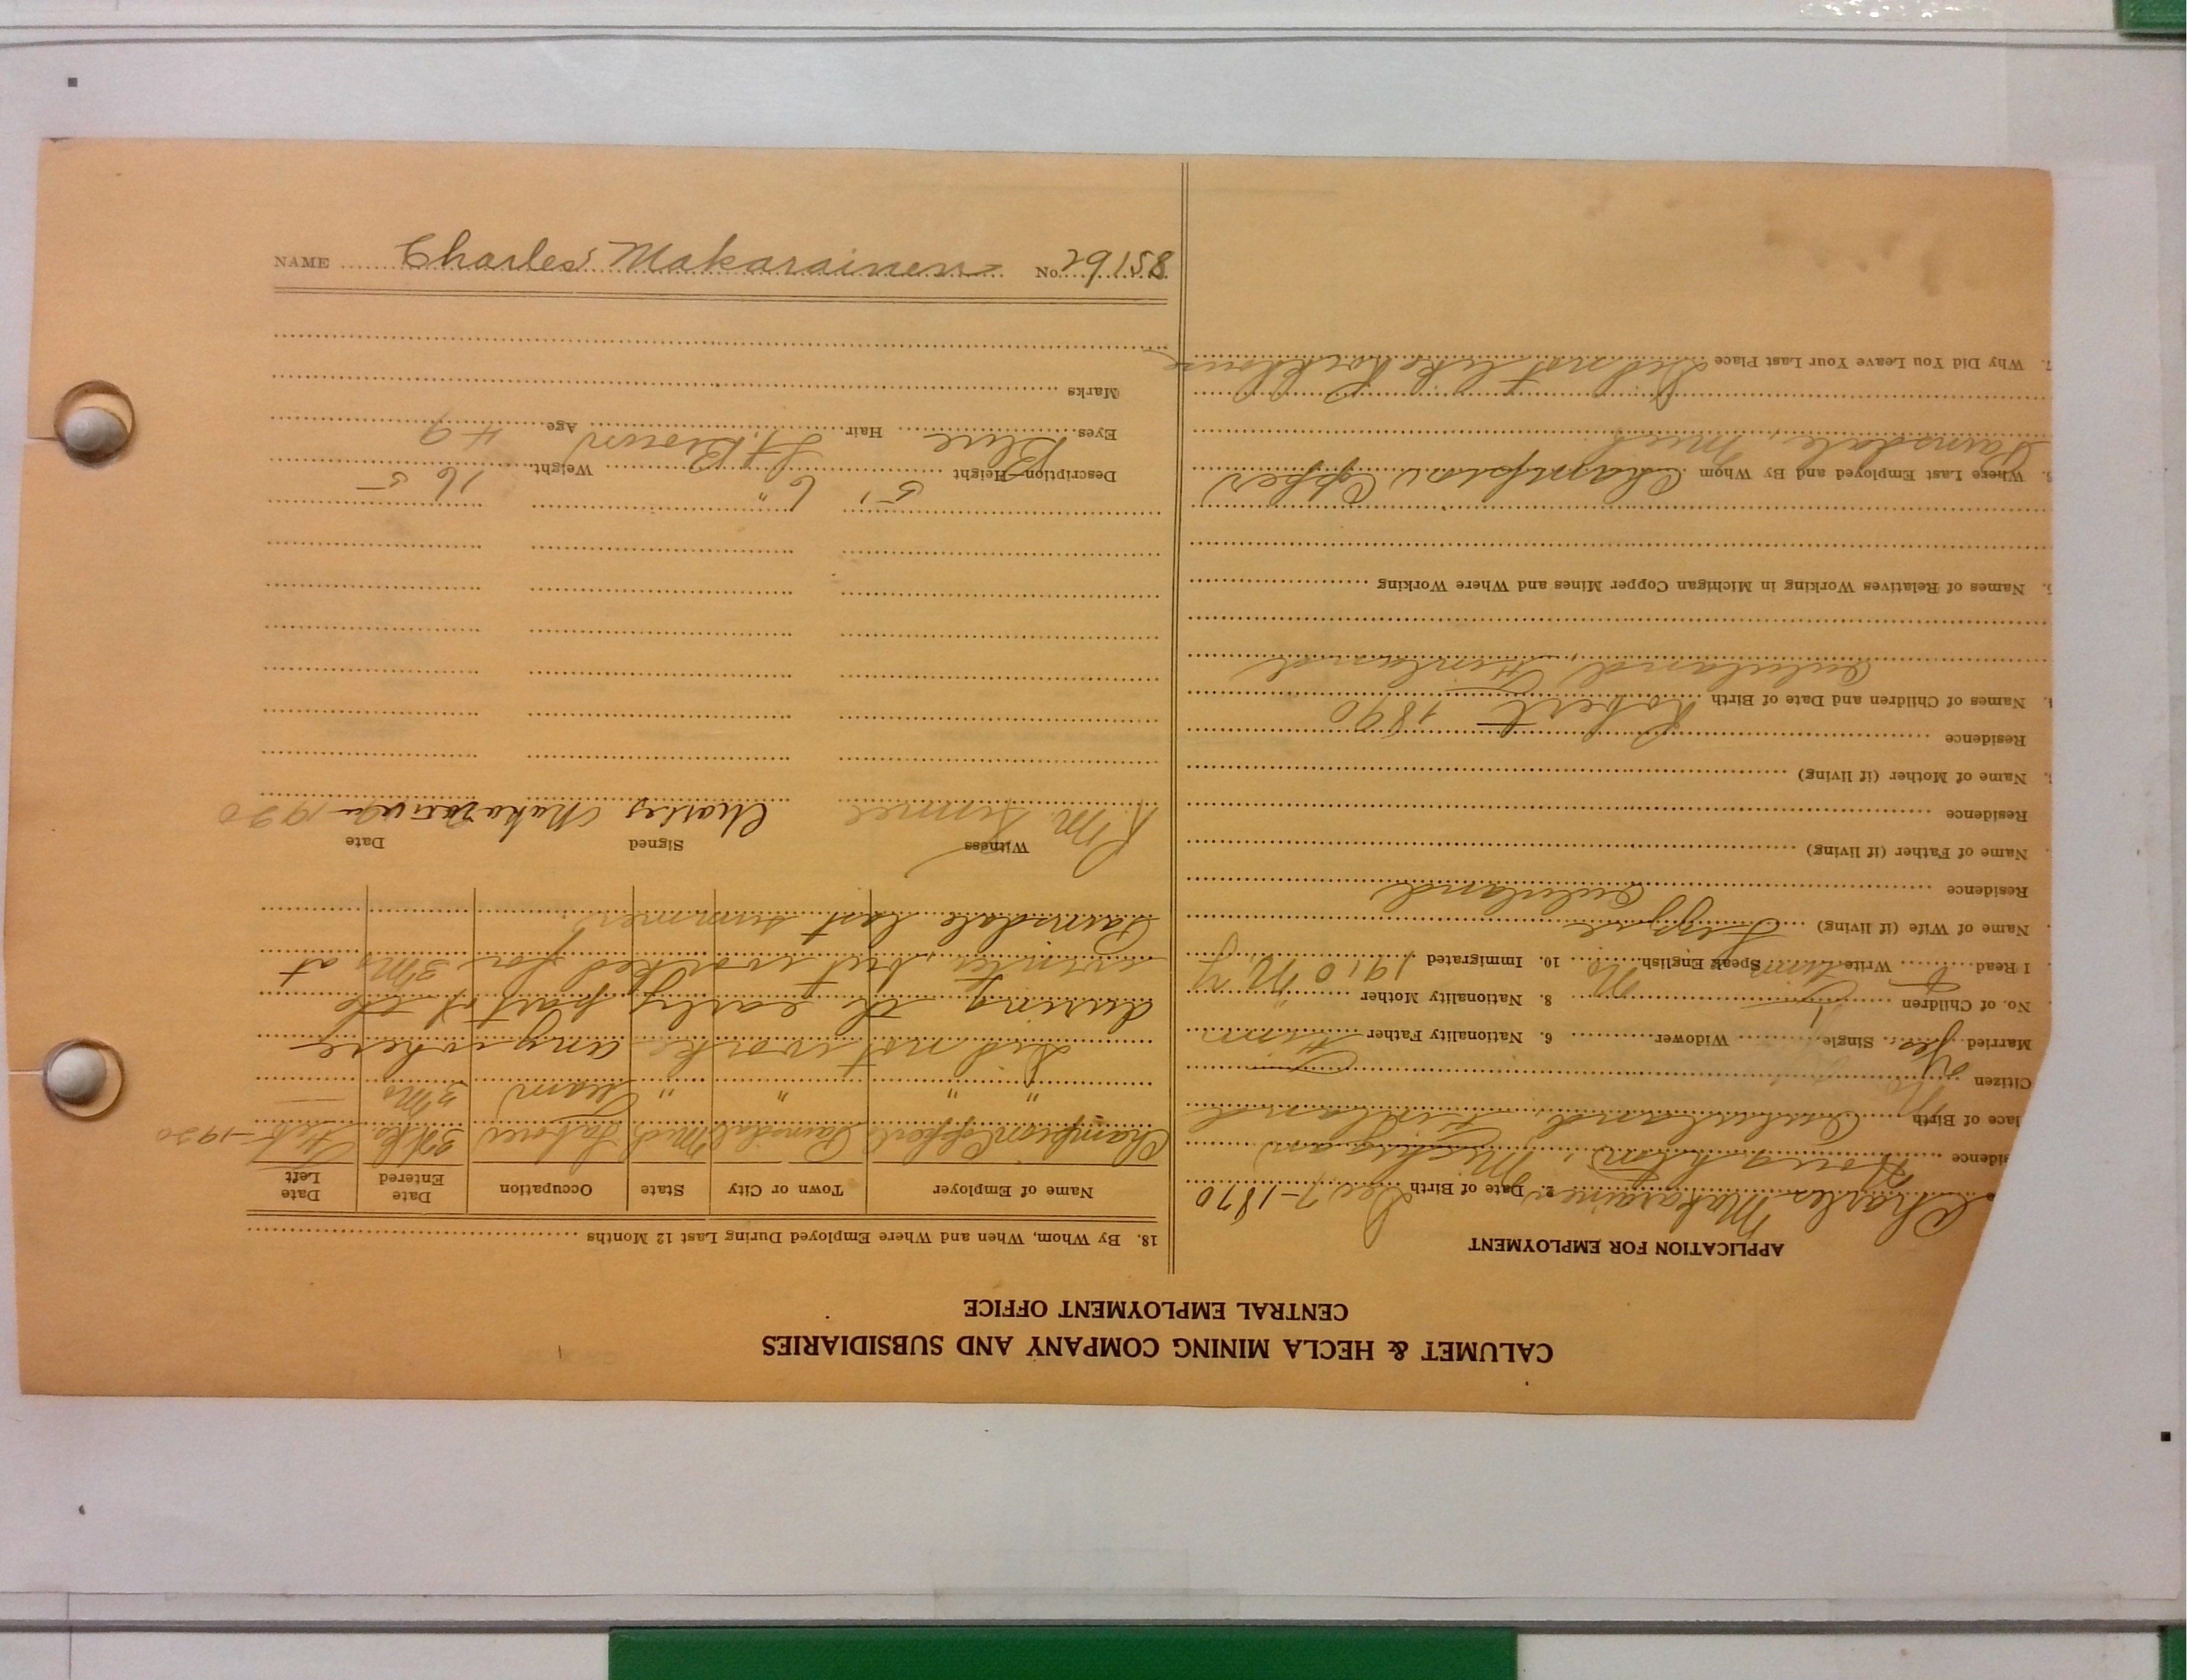 CALUMET & HECLA MINING COMPANY AND SUBSIDIARIES
CENTRAL EMPLOYMENT OFFICE
APPLICATION FOR EMPLOYMENT
Charles Makarainen 2. Date of Birth Dec 7-1870
idence Houghton, Michigan
lace of Birth Oululand, Finland
Citizen No
Married yes Single Widower 6. Nationality Father Finn
No. of Children 1 8. Nationality Mother "
I Read Write Finn Speak English No 10. Immigrated 1910 N.Y.
Name of Wife (if living)
Residence Oululand
Name of Father (if living)
Residence
Name of Mother (if living)
Residence
Names of Children and Date of Birth Robert 1890
Oululand, Finland
Names of Relatives Working in Michigan Copper Mines and Where Working
Where Last Employed and By Whom Champion Copper
Painsdale, Mich
7. Why Did You Leave Your Last Place Did not like
18. By Whom, When and Where Employed During Last 12 Months
Name of Employer Town or City State Occupation Date Entered Date Left
Champion Copper Painsdale Mich Laborer Feb-1920
" " " " 3 Mo —
Did not work anywhere
during the early part of the
winter, but worked for 3 Mo at
Painsdale last summer.
Witness Signed Date
R.M. Charles 1920
Description—Height 5' 6" Weight 165
Eyes Blue Hair Lt. Brown Age 49
Marks
NAME Charles Makarainen No. 29158